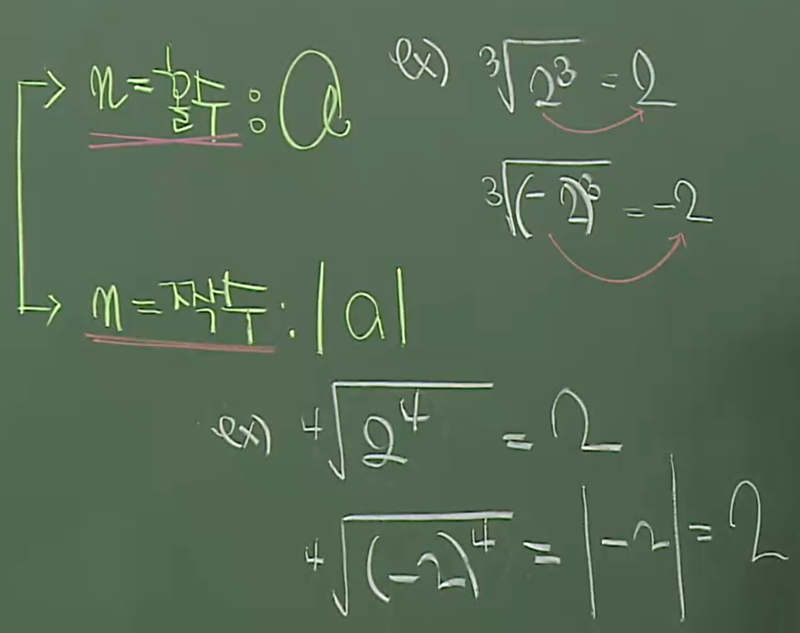 → n=홀수 : a
ex) ∛2³ = 2
∛(-2)³ = -2
→ n=짝수 : |a|
ex) ∜2⁴ = 2
∜(-2)⁴ = |-2| = 2